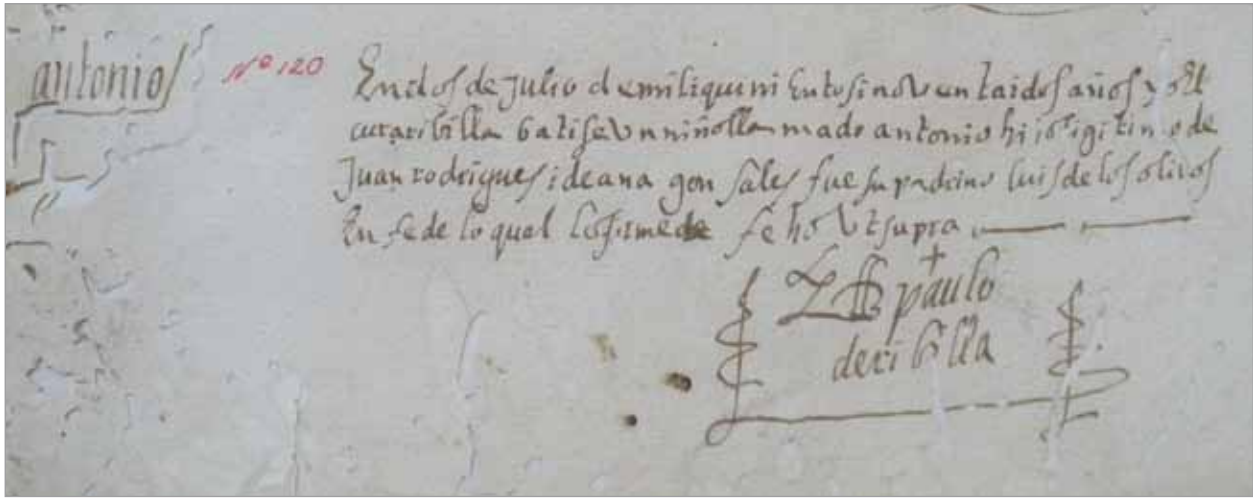 antonio
Nº 120
En dos de Julio de mil i quini entos i noventa i dos años yo El
cura ribilla batise Un niño llamado antonio hijo ligitimo de
Juan rodrigues i de ana gonsales fue su padrino luis de los olivos
En fe de lo qual lo firme fecho Ut supra
paulo
de ribilla